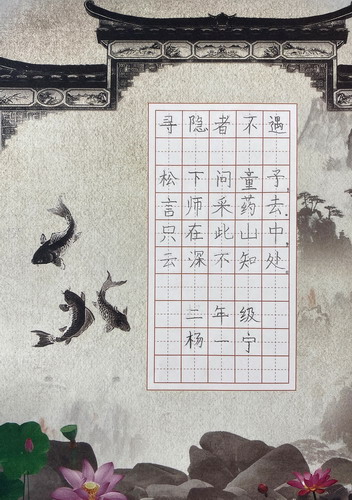 寻隐者不遇
松下问童子，
言师采药去。
只在此山中，
云深不知处。
二年级
杨一宁